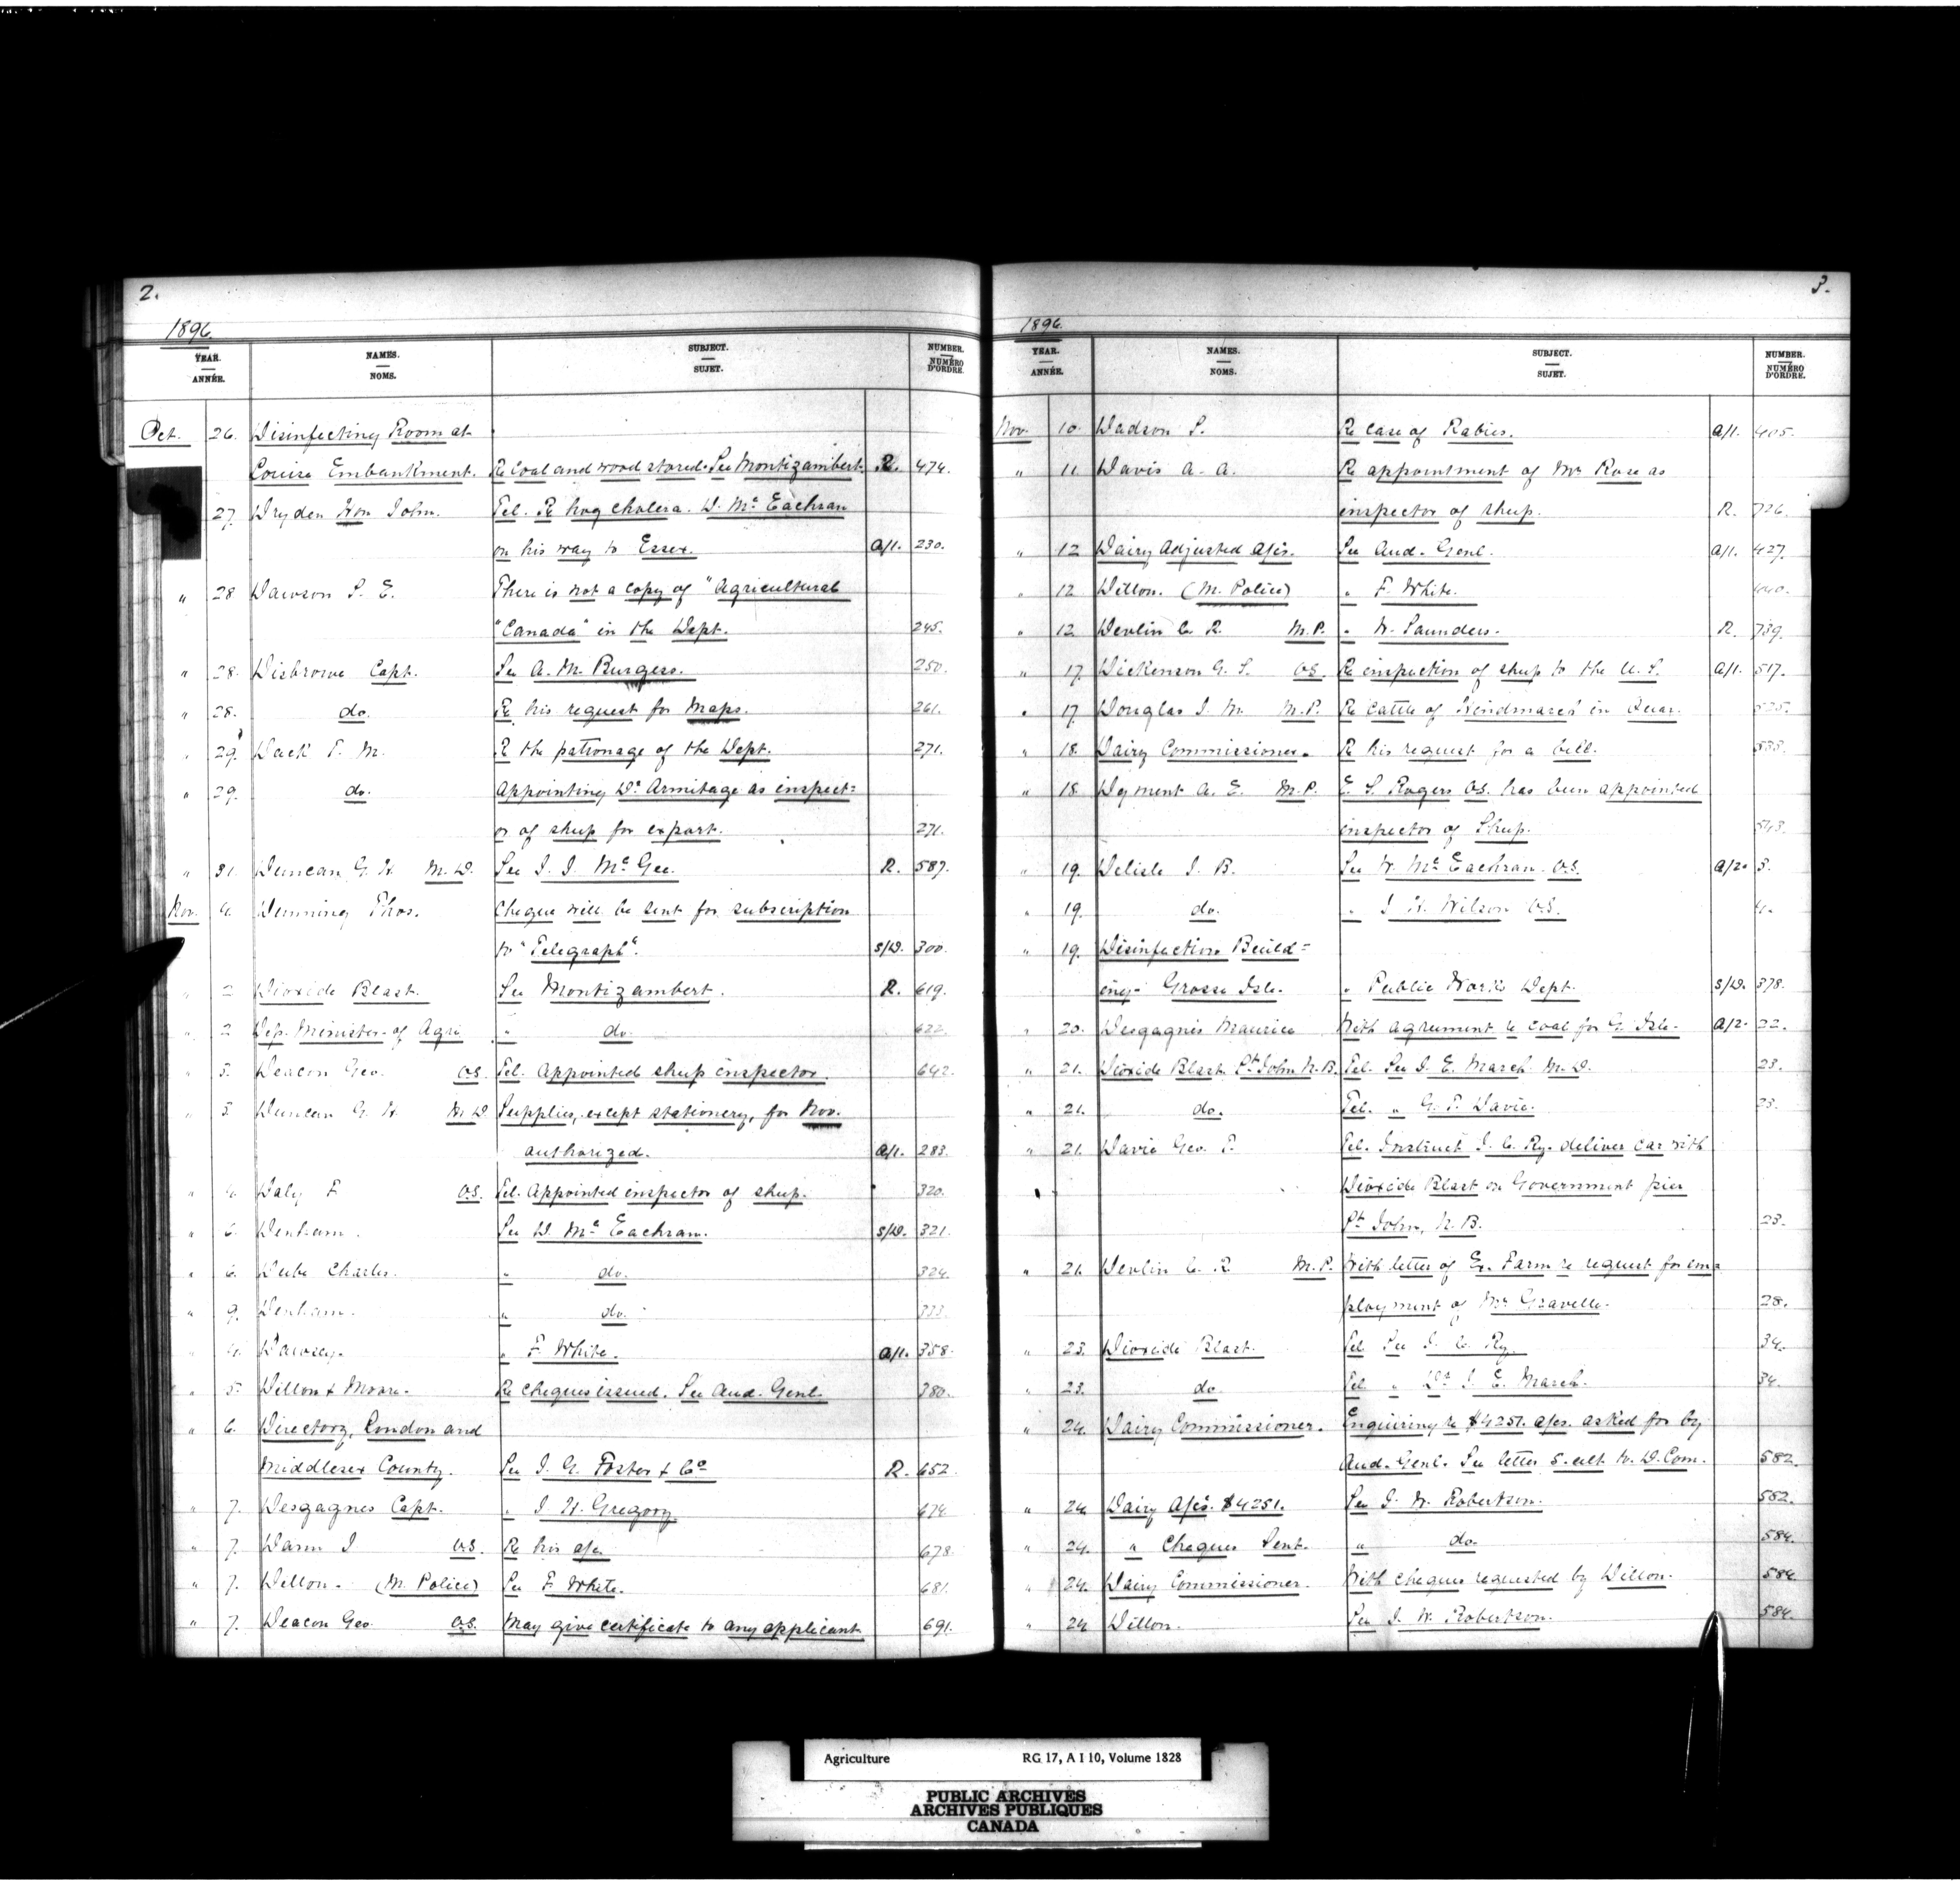 2.
1896.
YEAR. ANNÉE. NAMES. NOMS. SUBJECT. SUJET. NUMBER. NUMÉRO D'ORDRE.
Oct. 26. Disinfecting Room at
Louise Embankment. Re Coal and wood stored. See Montizambert. R. 474.
27. Dryden Hon John. Tel. Re hog cholera. D. Mc Eachran
on his way to Essex. A/1. 230.
" 28 Dawson S. E. There is not a copy of "Agricultural
"Canada" in the Dept. 245.
" 28. Disbrowe Capt. See A. M. Burgess. 250.
" 28. do. Re his request for Maps. 261.
" 29. Dack T. M. Re the patronage of the Dept. 271.
" 29. do. Appointing Dr. Armitage as inspect=
or of sheep for export. 271.
" 31. Duncan G. H. M.D. See J. J. Mc Gee. R. 587.
Nov. 4. Denning Thos. Cheque will be sent for subscription
to "Telegraph". S/W. 300.
" 2 Dioxide Blast. See Montizambert. R. 619.
" 2 Dep. Minister of Agri " do. 622.
" 3. Deacon Geo. V.S. Tel. Appointed sheep inspector. 642.
" 3. Duncan G. H. M.D. Supplies, except stationery, for Nov.
authorized. A/1. 283.
" 4. Daly F. V.S. Tel. Appointed inspector of sheep. 320.
" 6. Denham. See D. Mc Eachran. S/W. 321.
" 6. Dube Charles. " do. 324.
" 9. Denham. " do. 333.
" 4. Dawsey. " F. White. A/1. 358.
" 5. Dillon & Moore. Re cheques issued. See Aud. Genl. 380.
" 6. Directory, London and
Middlesex County. See J. G. Foster & Co R. 652.
" 7. Desgagnes Capt. " J. H. Gregory. 674.
" 7. Dann J. V.S. Re his a/c. 678.
" 7. Dillon. (M. Police) See F. White. 681.
" 7. Deacon Geo. V.S. May give certificate to any applicant 691.
3.
1896.
YEAR. ANNÉE. NAMES. NOMS. SUBJECT. SUJET. NUMBER. NUMÉRO D'ORDRE.
Nov. 10. Dadson S. Re Case of Rabies. A/1. 405.
" 11 Davis A. A. Re appointment of Mr Rose as
inspector of sheep. R. 726.
" 12 Dairy Adjusted A/cs. See Aud. Genl. A/1. 427.
" 12 Dillon. (M. Police) " F. White. 440.
" 12 Devlin C. R. M.P. " W. Saunders. R. 739.
" 17. Dickenson G. S. V.S. Re inspection of sheep to the U. S. A/1. 517.
" 17 Douglas J. M. M.P. Re Cattle of Hindmarsh in Quar. 525.
" 18. Dairy Commissioner. Re his request for a bill. 533.
" 18. Dyment A. E. M.P. E. S. Rogers V.S. has been appointed
inspector of Sheep. 543.
" 19. Delisle J. B. See D. Mc Eachran. V.S. A/2. 3.
" 19. do. " J. H. Wilson V.S. 4.
" 19. Disinfection Build=
ing- Grosse Isle. " Public Works Dept. S/W. 378.
" 20. Desgagnés Maurice With agreement re coal for G. Isle. A/2. 22.
" 21. Dioxide Blast St John N.B. Tel. See J. E. March M.D. 23.
" 21. do. Tel. " G. T. Davie. 23.
" 21. Davie Geo. T. Tel. Instruct I. C. Ry. deliver car with
Dioxide Blast on Government pier
St John, N.B. 23.
" 21. Devlin C. R. M.P. With letter of Ex. Farm re request for em=
ployment of Mr Gravelle. 28.
" 23. Dioxide Blast. Tel See I. C. Ry. 34.
" 23. do. Tel " Dr J. E. March. 34.
" 24. Dairy Commissioner. Enquiring re $4251. a/cs. asked for by
Aud. Genl. See letter 5. ult to D. Com. 582.
" 24. Dairy A/cs. $4251. See J. W. Robertson. 582.
" 24. " Cheques Sent. " do. 584.
" 24. Dairy Commissioner. With cheques requested by Dillon. 584.
" 24 Dillon. See J. W. Robertson. 584.
Agriculture RG 17, A I 10, Volume 1828
PUBLIC ARCHIVES
ARCHIVES PUBLIQUES
CANADA